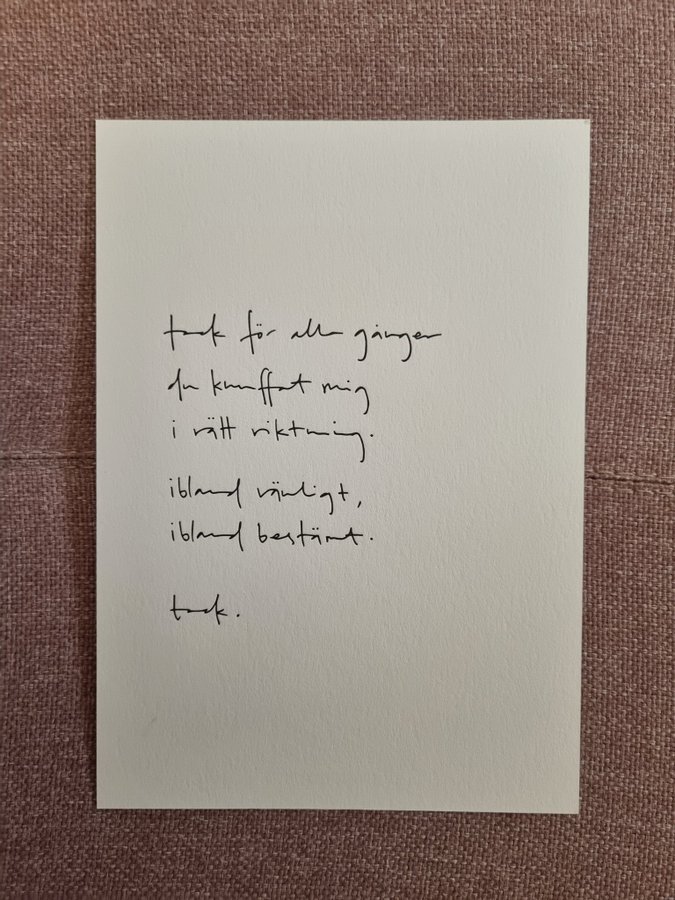 tack för alla gånger
du knuffat mig
i rätt riktning.
ibland vänligt,
ibland bestämt.
tack.